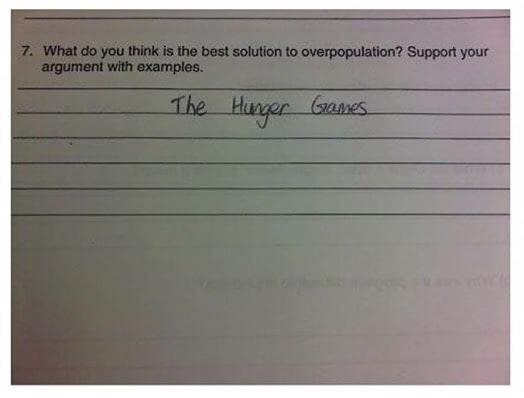 7. What do you think is the best solution to overpopulation? Support your
argument with examples.
The Hunger Games